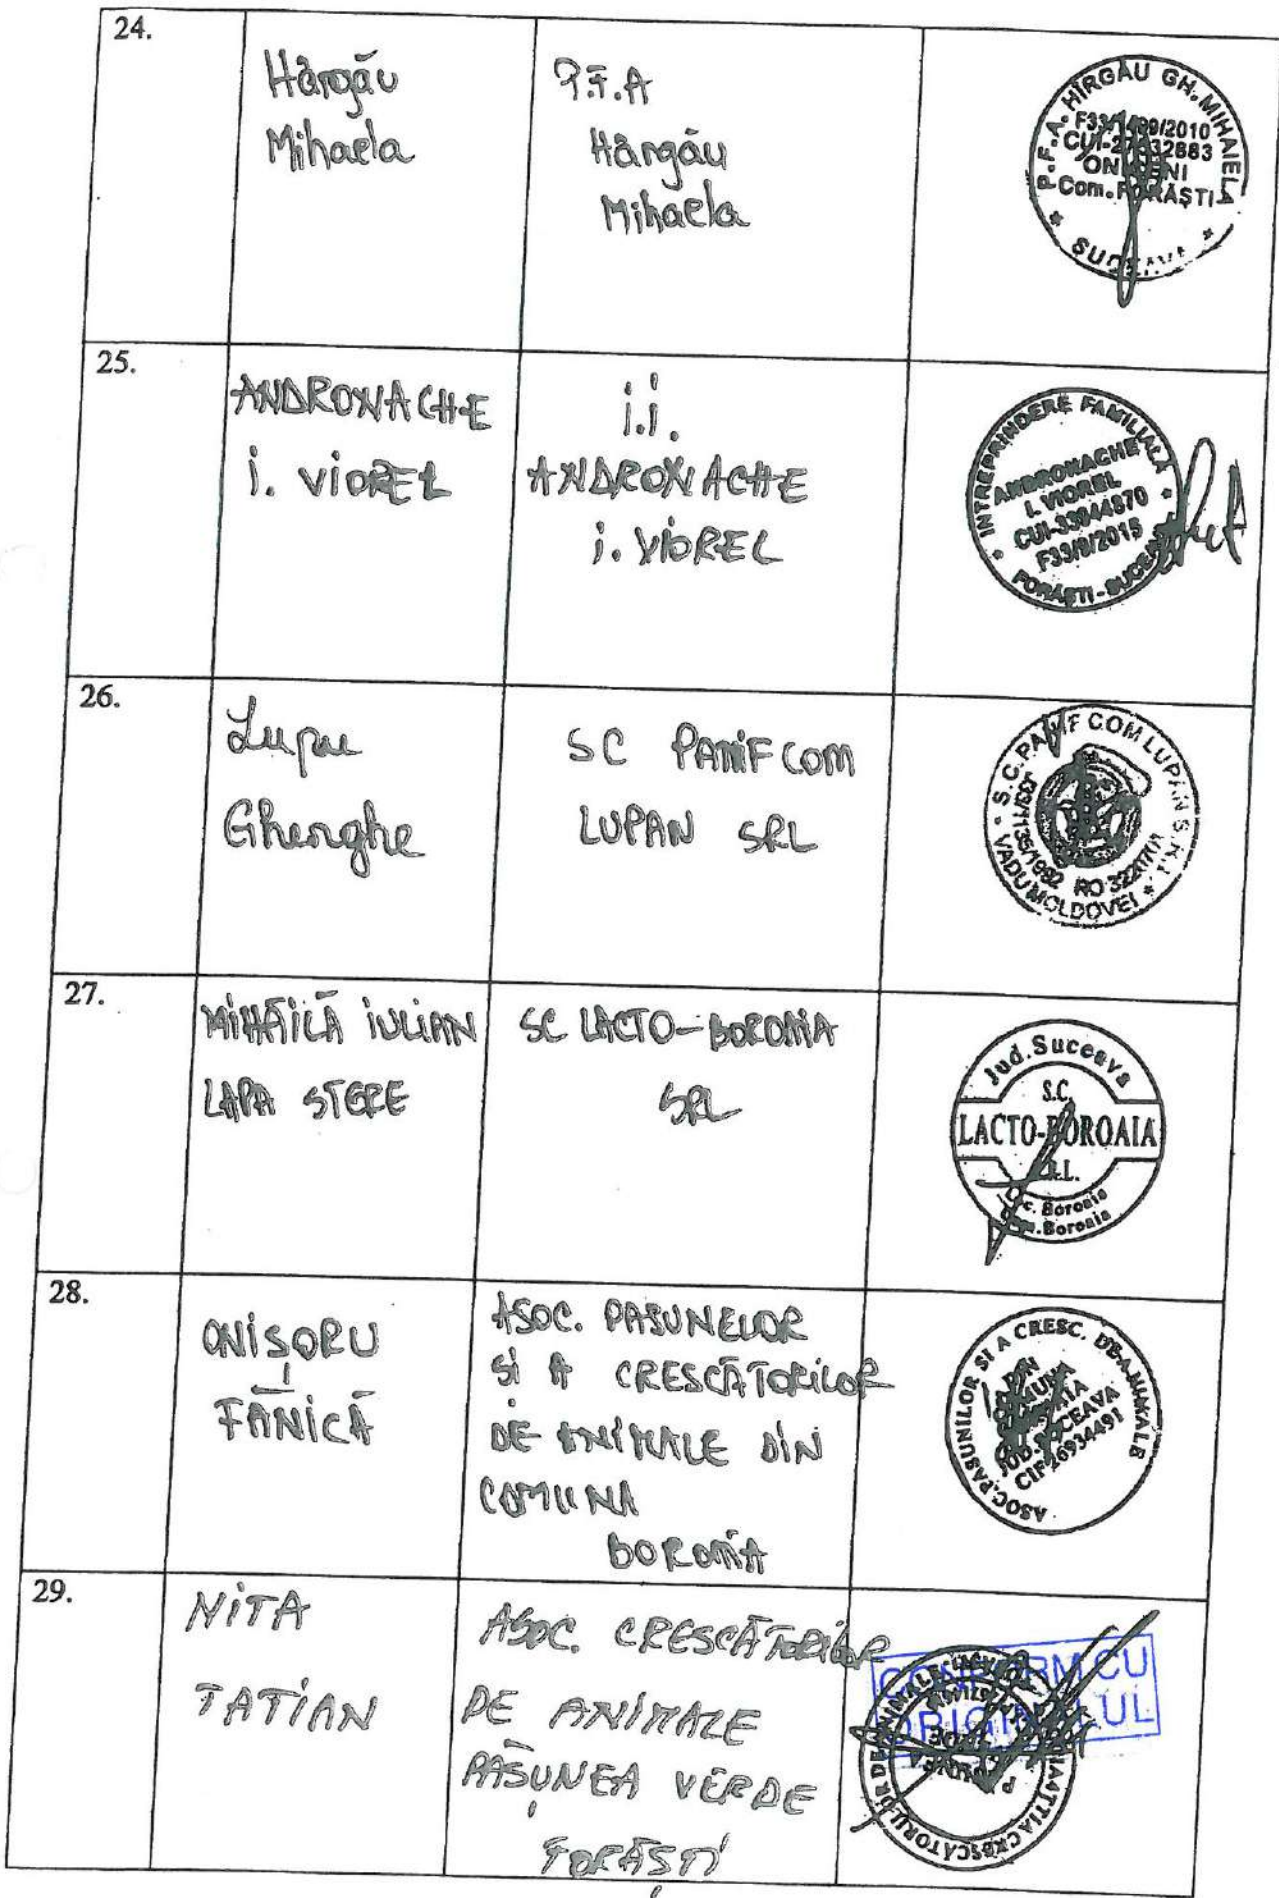 24.
Hângău
Mihaela
P.F.A
Hângău
Mihaela
P.F.A. HÎRGĂU GH. MIHAIELA
F33/1499/2010
CUI-27332883
ONICENI
Com. FORĂȘTI
* SUCEAVA *
25.
ANDRONACHE
I. VIOREL
i.i.
ANDRONACHE
I. VIOREL
* INTREPRINDERE FAMILIALĂ *
ANDRONACHE
I. VIOREL
CUI-33944870
F33/9/2015
FORĂȘTI - SUCEAVA
26.
Lupu
Gheorghe
SC PANIFCOM
LUPAN SRL
* S.C. PANIF COM LUPAN S.R.L. *
VADU MOLDOVEI
27.
MIHĂILĂ IULIAN
LAPA STERE
SC LACTO-BOROAIA
SRL
Jud. Suceava
S.C.
LACTO-BOROAIA
S.R.L.
Loc. Boroaia
Com. Boroaia
28.
ONIȘORU
FĂNICĂ
ASOC. PASUNELOR
SI A CRESCĂTORILOR
DE ANIMALE DIN
COMUNA
BOROAIA
ASOC. PASUNILOR SI A CRESC. DE ANIMALE
DIN
COMUNA
BOROAIA
JUD. SUCEAVA
CIF 26934491
29.
NITA
TATIAN
ASOC. CRESCĂTORILOR
DE ANIMALE
PĂȘUNEA VERDE
FORĂȘTI
CONFORM CU
ORIGINALUL